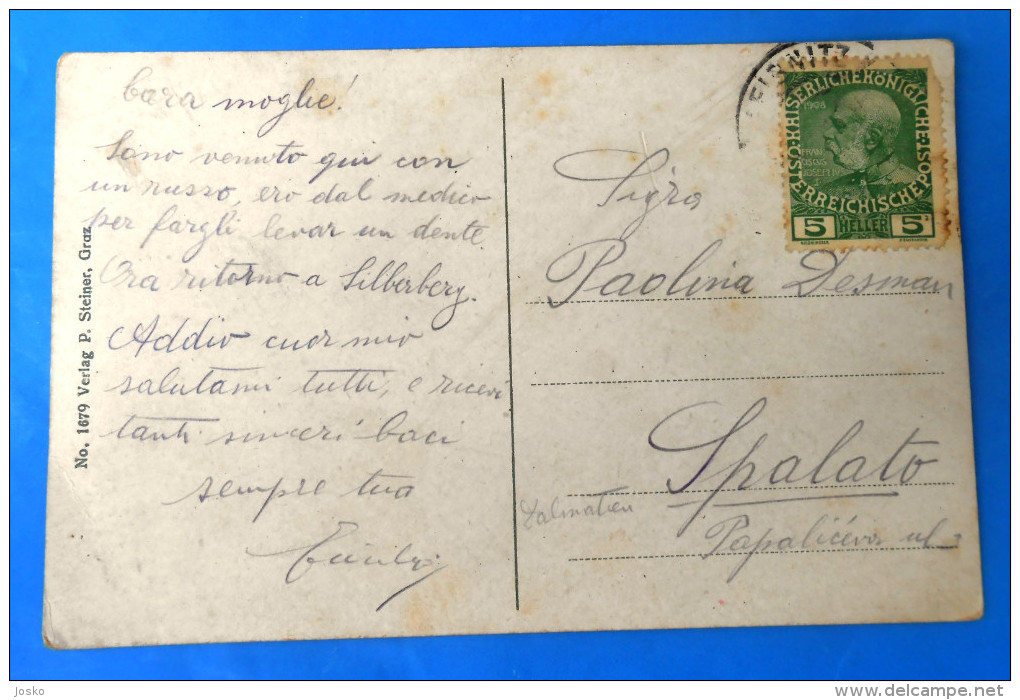 Cara moglie!
Sono venuto qui con
un russo, ero dal medico
per fargli levar un dente.
Ora ritorno a Silberberg.
Addio cuor mio
salutami tutti, e ricevi
tanti sinceri baci
sempre tuo
No. 1679 Verlag P. Steiner, Graz.
EIBNITZ
KAISERLICHE KÖNIGLICHE ÖSTERREICHISCHE POST
1908
FRANCISCUS
JOSEPHUS I
5 HELLER 5
Sigra
Paolina Desman
Spalato
Dalmatien
Papalićeva ul.
Josko
delcampe.net